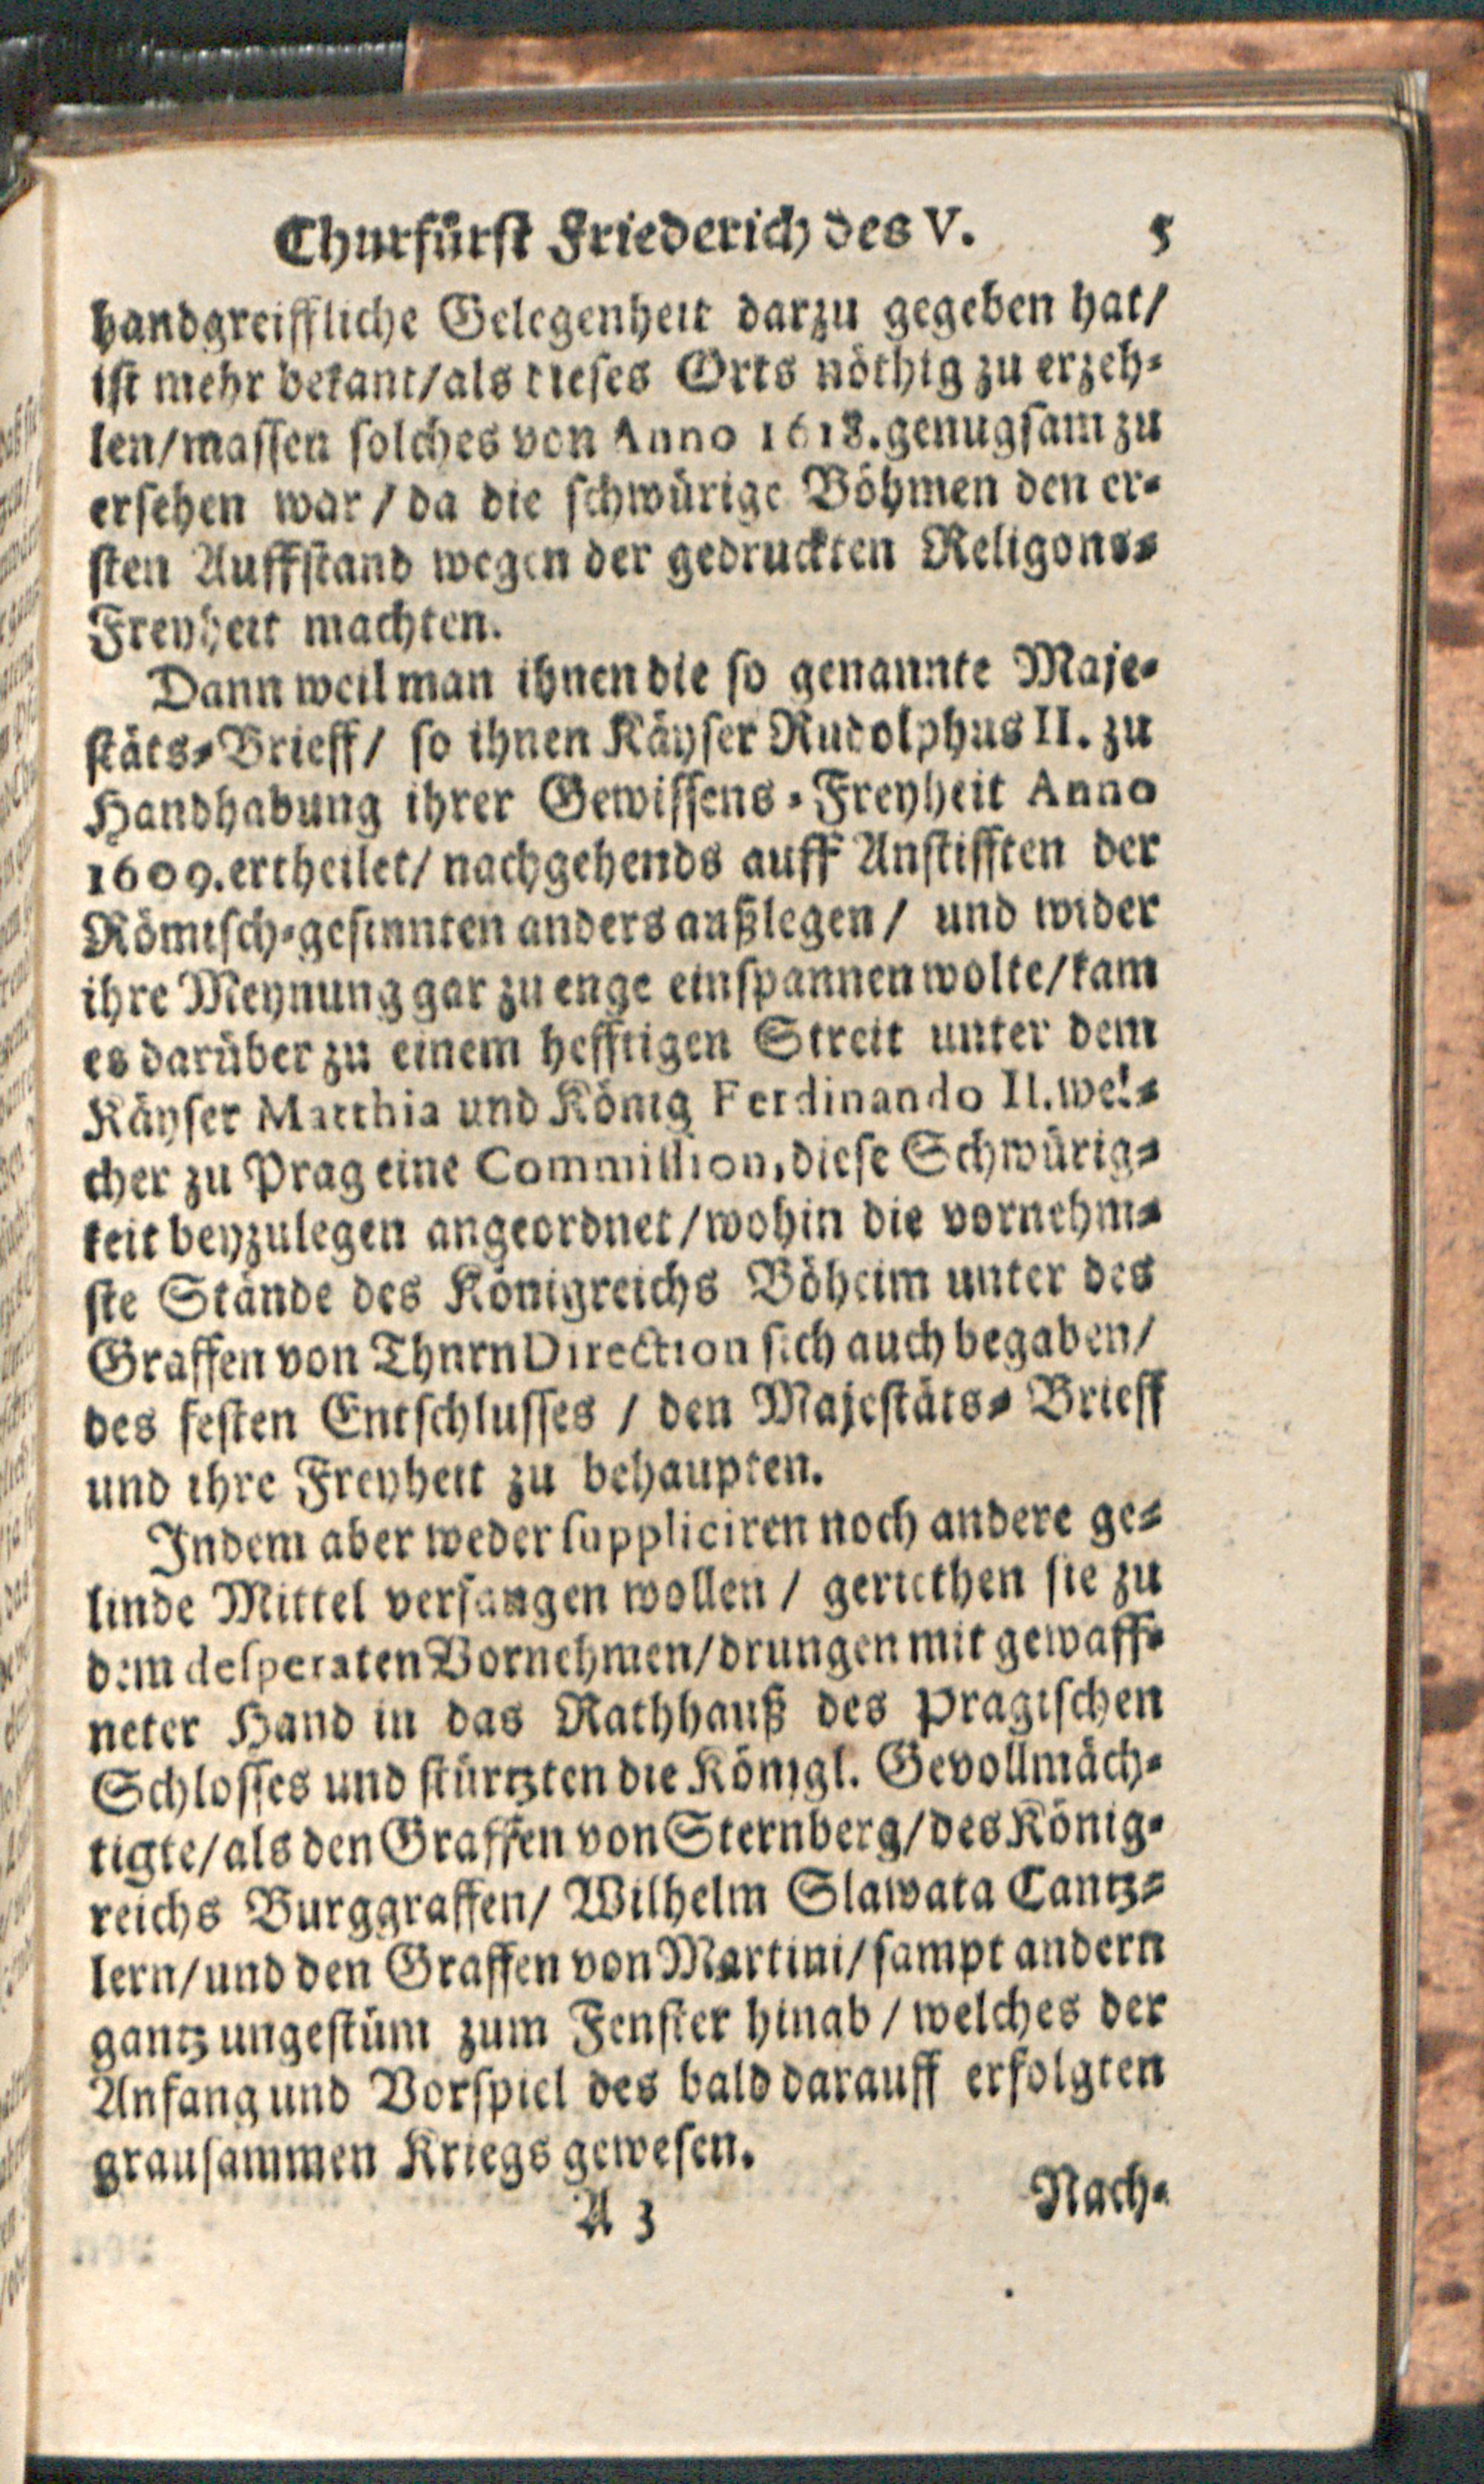 Churfürst Friederich des V. 5
handgreiffliche Gelegenheit darzu gegeben hat/
ist mehr bekant/als dieses Orts nöthig zu erzeh-
len/massen solches von Anno 1618. genugsam zu
ersehen war / da die schwürige Böhmen den er-
sten Auffstand wegen der gedruckten Religons-
Freyheit machten.
Dann weil man ihnen die so genannte Maje-
stäts-Brieff/ so ihnen Käyser Rudolphus II. zu
Handhabung ihrer Gewissens-Freyheit Anno
1609. ertheilet/ nachgehends auff Anstifften der
Römisch-gesinnten anders außlegen / und wider
ihre Meynung gar zu enge einspannen wolte/kam
es darüber zu einem hefftigen Streit unter dem
Käyser Matthia und König Ferdinando II. wel-
cher zu Prag eine Commission, diese Schwürig-
keit beyzulegen angeordnet/wohin die vornehm-
ste Stände des Königreichs Böheim unter des
Graffen von Thnrn Direction sich auch begaben/
des festen Entschlusses / den Majestäts-Brieff
und ihre Freyheit zu behaupten.
Indem aber weder suppliciren noch andere ge-
linde Mittel verfangen wollen / geriethen sie zu
dem desperaten Vornehmen/drungen mit gewaff-
neter Hand in das Rathhauß des Pragischen
Schlosses und stürtzten die Königl. Gevollmäch-
tigte/als den Graffen von Sternberg/des König-
reichs Burggraffen/ Wilhelm Slawata Cantz-
lern/und den Graffen von Martini/sampt andern
gantz ungestüm zum Fenster hinab / welches der
Anfang und Vorspiel des bald darauff erfolgten
grausammen Kriegs gewesen.
A 3 Nach-